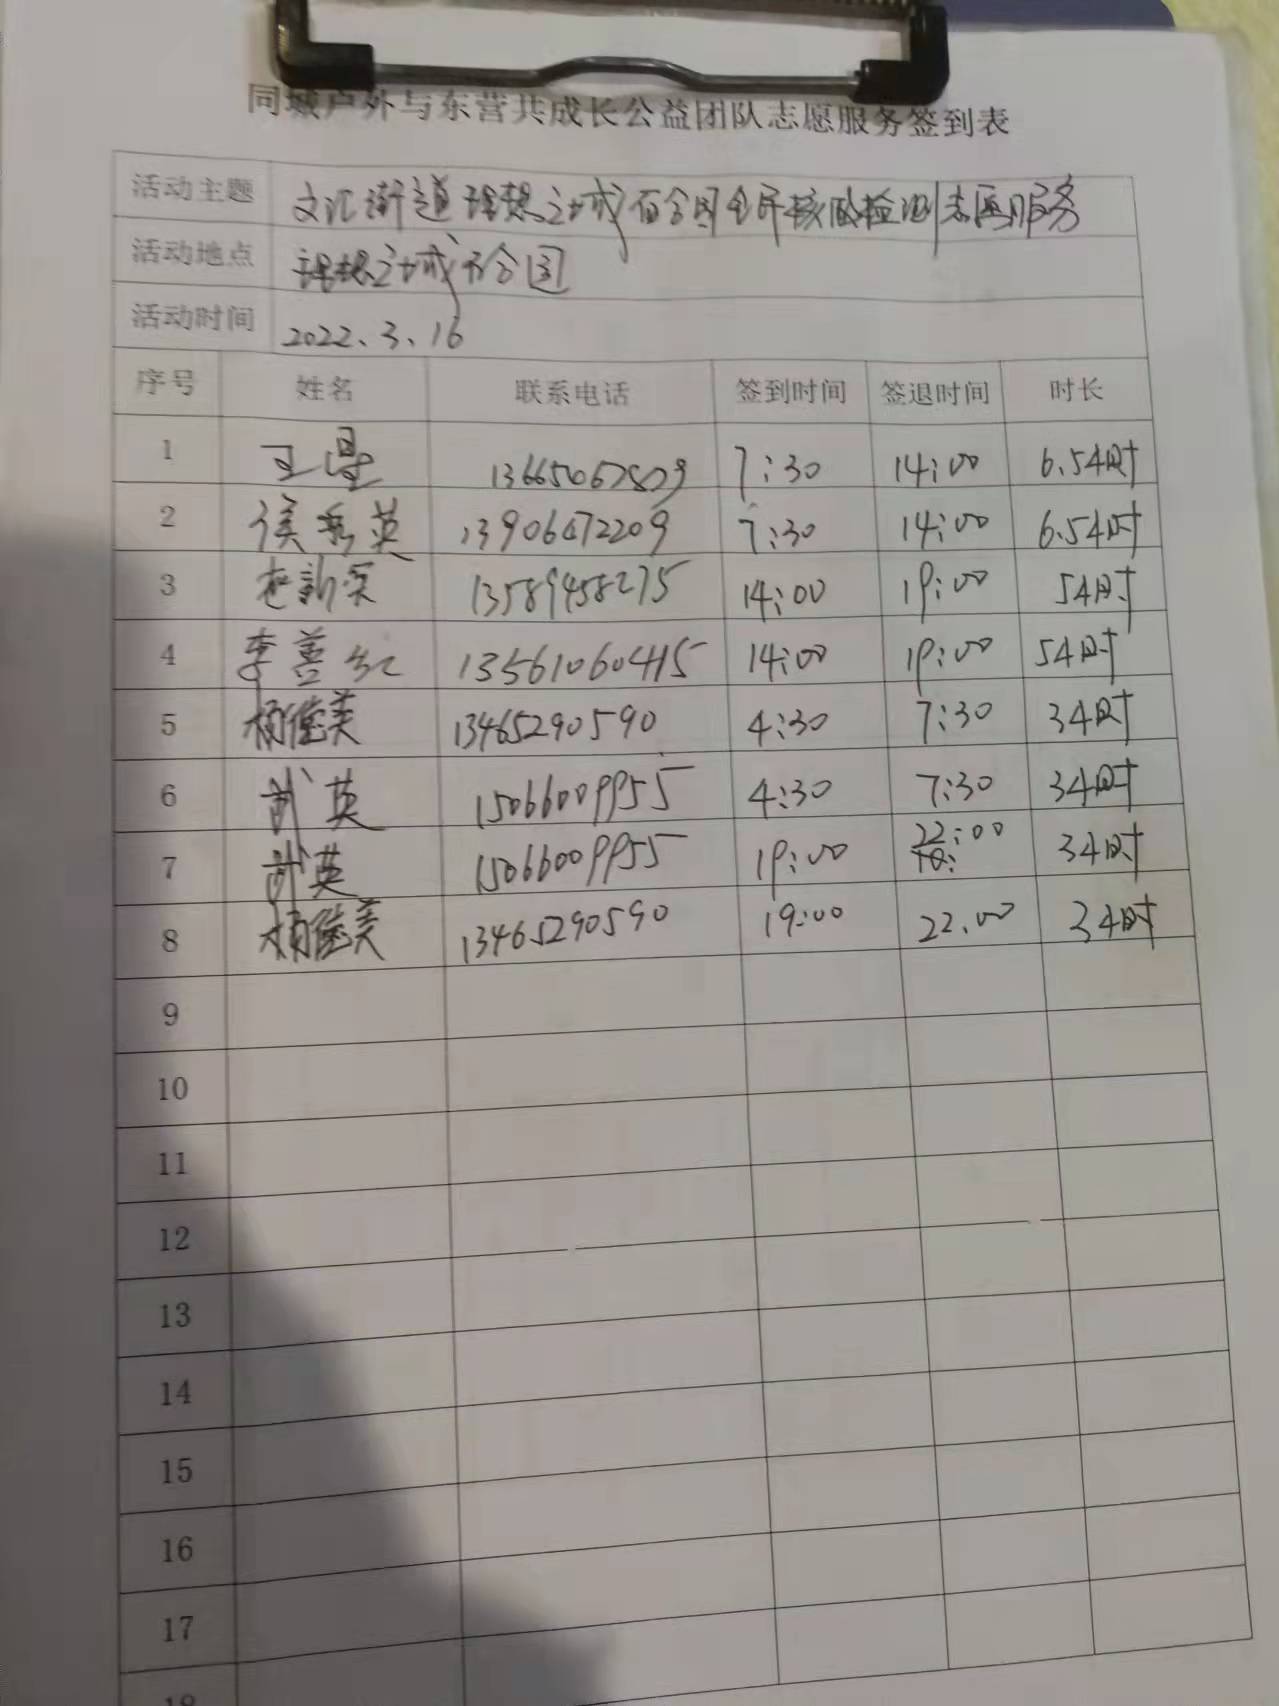 同城户外与东营共成长公益团队志愿服务签到表
活动主题 文汇街道理想之城百合园全民核酸检测志愿服务
活动地点 理想之城百合园
活动时间 2022、3、16
序号 姓名 联系电话 签到时间 签退时间 时长
1 7:30 14:00 6.5小时
2 侯秀英 13906472209 7:30 14:00 6.5小时
3 13589458275 14:00 19:00 5小时
4 李善红 13561060415 14:00 19:00 5小时
5 杨健美 13465290590 4:30 7:30 3小时
6 武英 15066009955 4:30 7:30 3小时
7 武英 15066009955 19:00 22:00 3小时
8 杨健美 13465290590 19:00 22.00 3小时
9
10
11
12
13
14
15
16
17
18